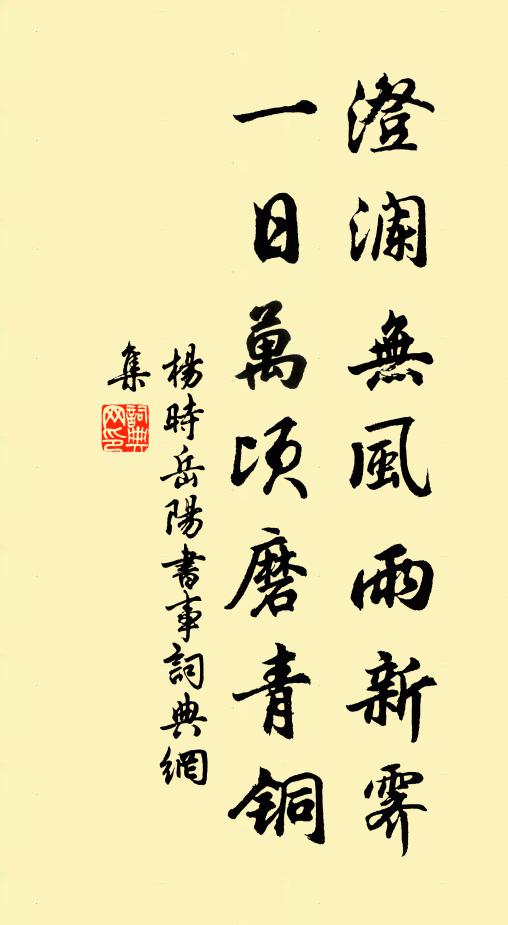 澄瀾無風雨新霽
一日萬頃磨青铜
楊時岳陽書事詞典網
集
詞典
网印